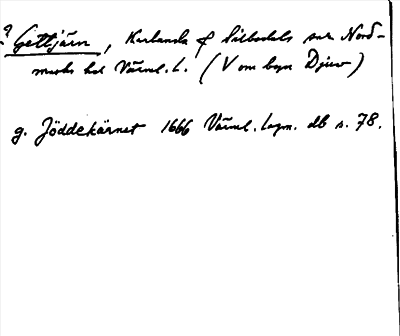 ? Gettjärn, Karlanda f Silbodals sn Nord-
marks hd Värml. l. (V om byn Djuv)
g. Jöddekärnet 1666 Värml. lagm. db s. 78.